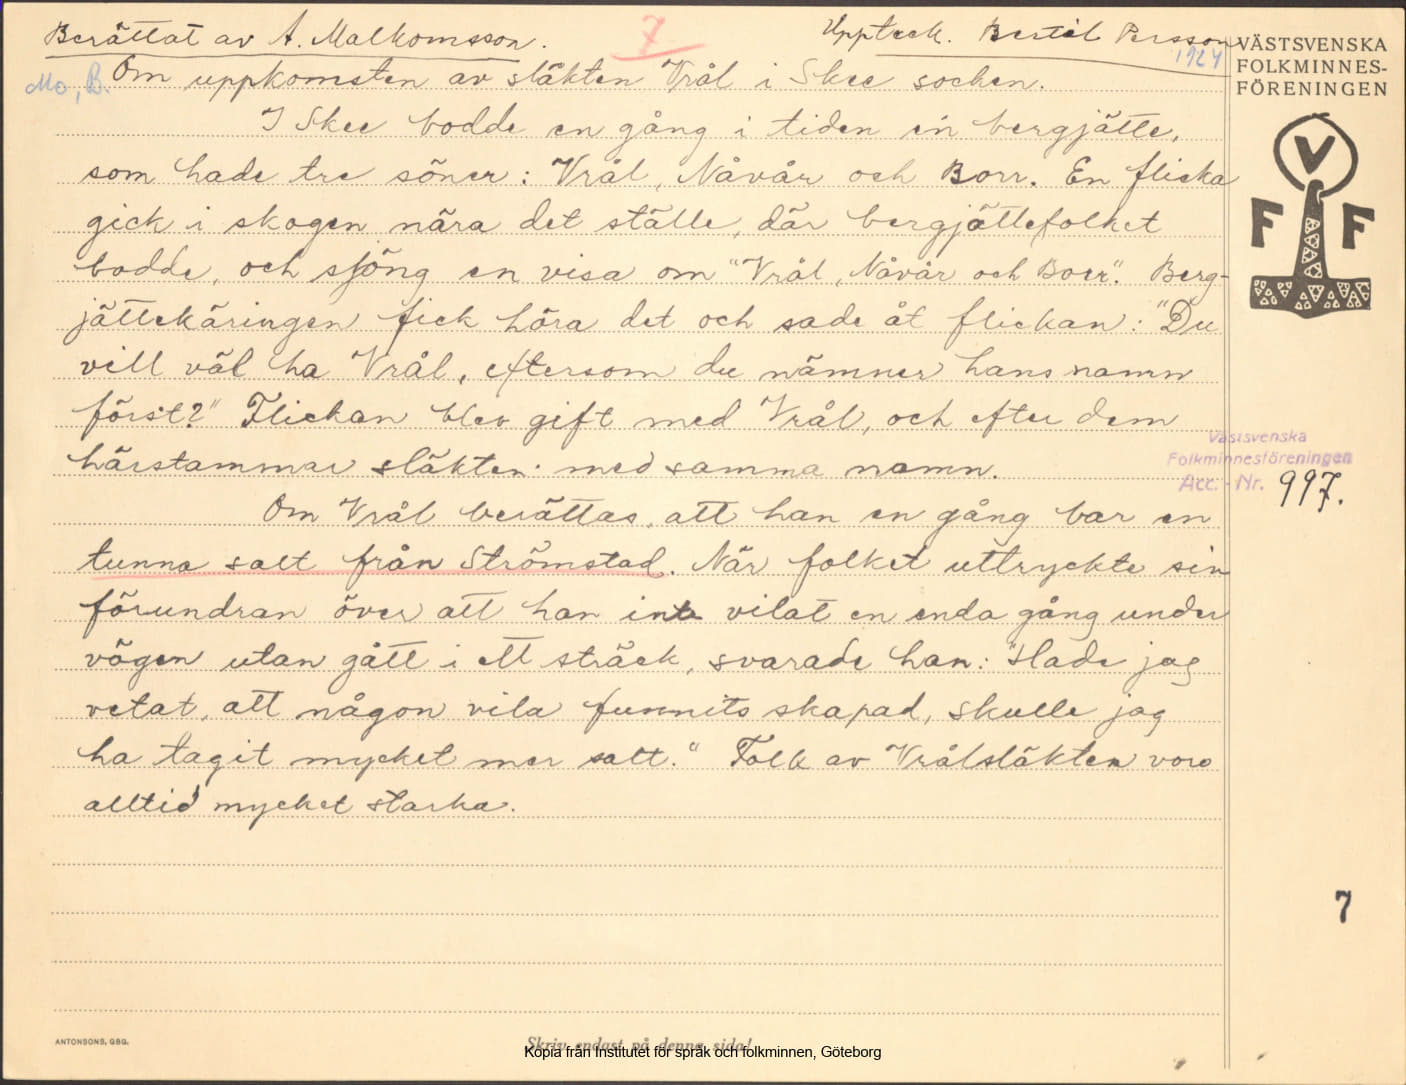 Berättat av A. Malkomsson.
7
Uppteck. Bertil Persson
1924
VÄSTSVENSKA
FOLKMINNES-
FÖRENINGEN
Mo, B.
Om uppkomsten av släkten Vrål i Skee socken.
I Skee bodde en gång i tiden en bergjätte,
som hade tre söner: Vrål, Nåvår och Borr. En flicka
gick i skogen nära det ställe, där bergjättefolket
bodde, och sjöng en visa om "Vrål, Nåvår och Borr". Berg-
jättekäringen fick höra det och sade åt flickan: "Du
vill väl ha Vrål, eftersom du nämner hans namn
först?" Flickan blev gift med Vrål, och efter dem
härstammar släkten med samma namn.
Om Vrål berättas, att han en gång bar en
tunna salt från Strömstad. När folket uttryckte sin
förundran över att han inte vilat en enda gång under
vägen utan gått i ett sträck, svarade han: "Hade jag
vetat, att någon vila funnits skapad, skulle jag
ha tagit mycket mer salt." Folk av Vrålsläkten voro
alltid mycket starka.
V
F F
Västsvenska
Folkminnesföreningen
Acc. Nr. 997.
7
ANTONSONS, GBG.
Skriv endast på denna sida!
Kopia från Institutet för språk och folkminnen, Göteborg